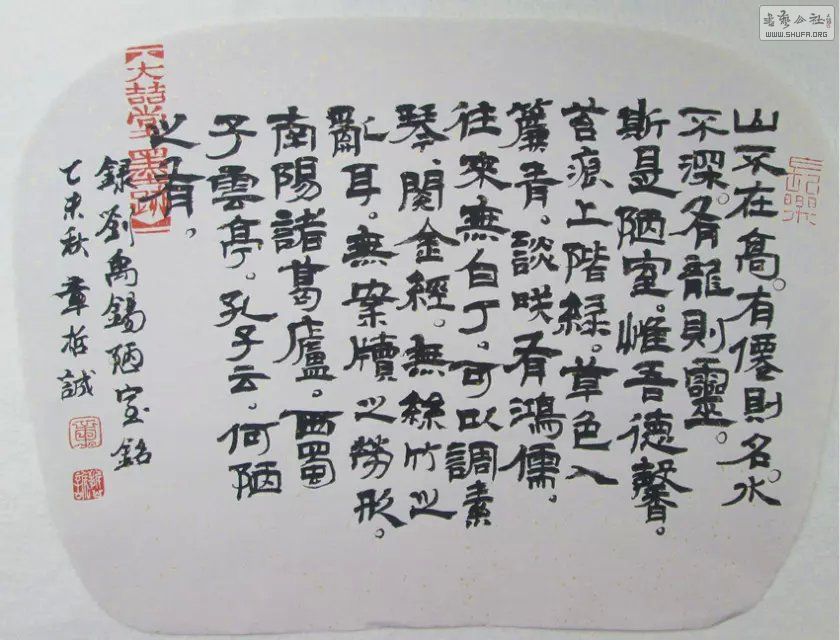 山不在高。有僊則名。水
不深。有龍則靈。
斯是陋室。惟吾德馨。
苔痕上階緑。草色入
簾青。談咲有鴻儒。
往來無白丁。可以調素
琴、閱金經。無絲竹之
亂耳。無案牘之勞形。
南陽諸葛廬。西蜀
子雲亭。孔子云。何陋
之有。
録劉禹錫陋室銘
乙未秋 章哲誠
【大喆堂墨跡】
長樂
章
WWW.SHUFA.ORG